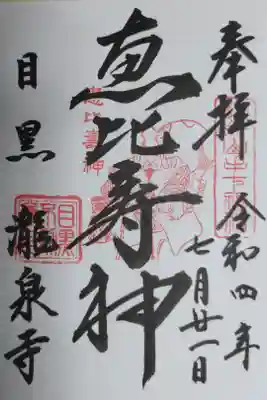 奉拝
令和四年
七月廿一日
恵比寿神
恵比寿神
目黒
瀧泉寺